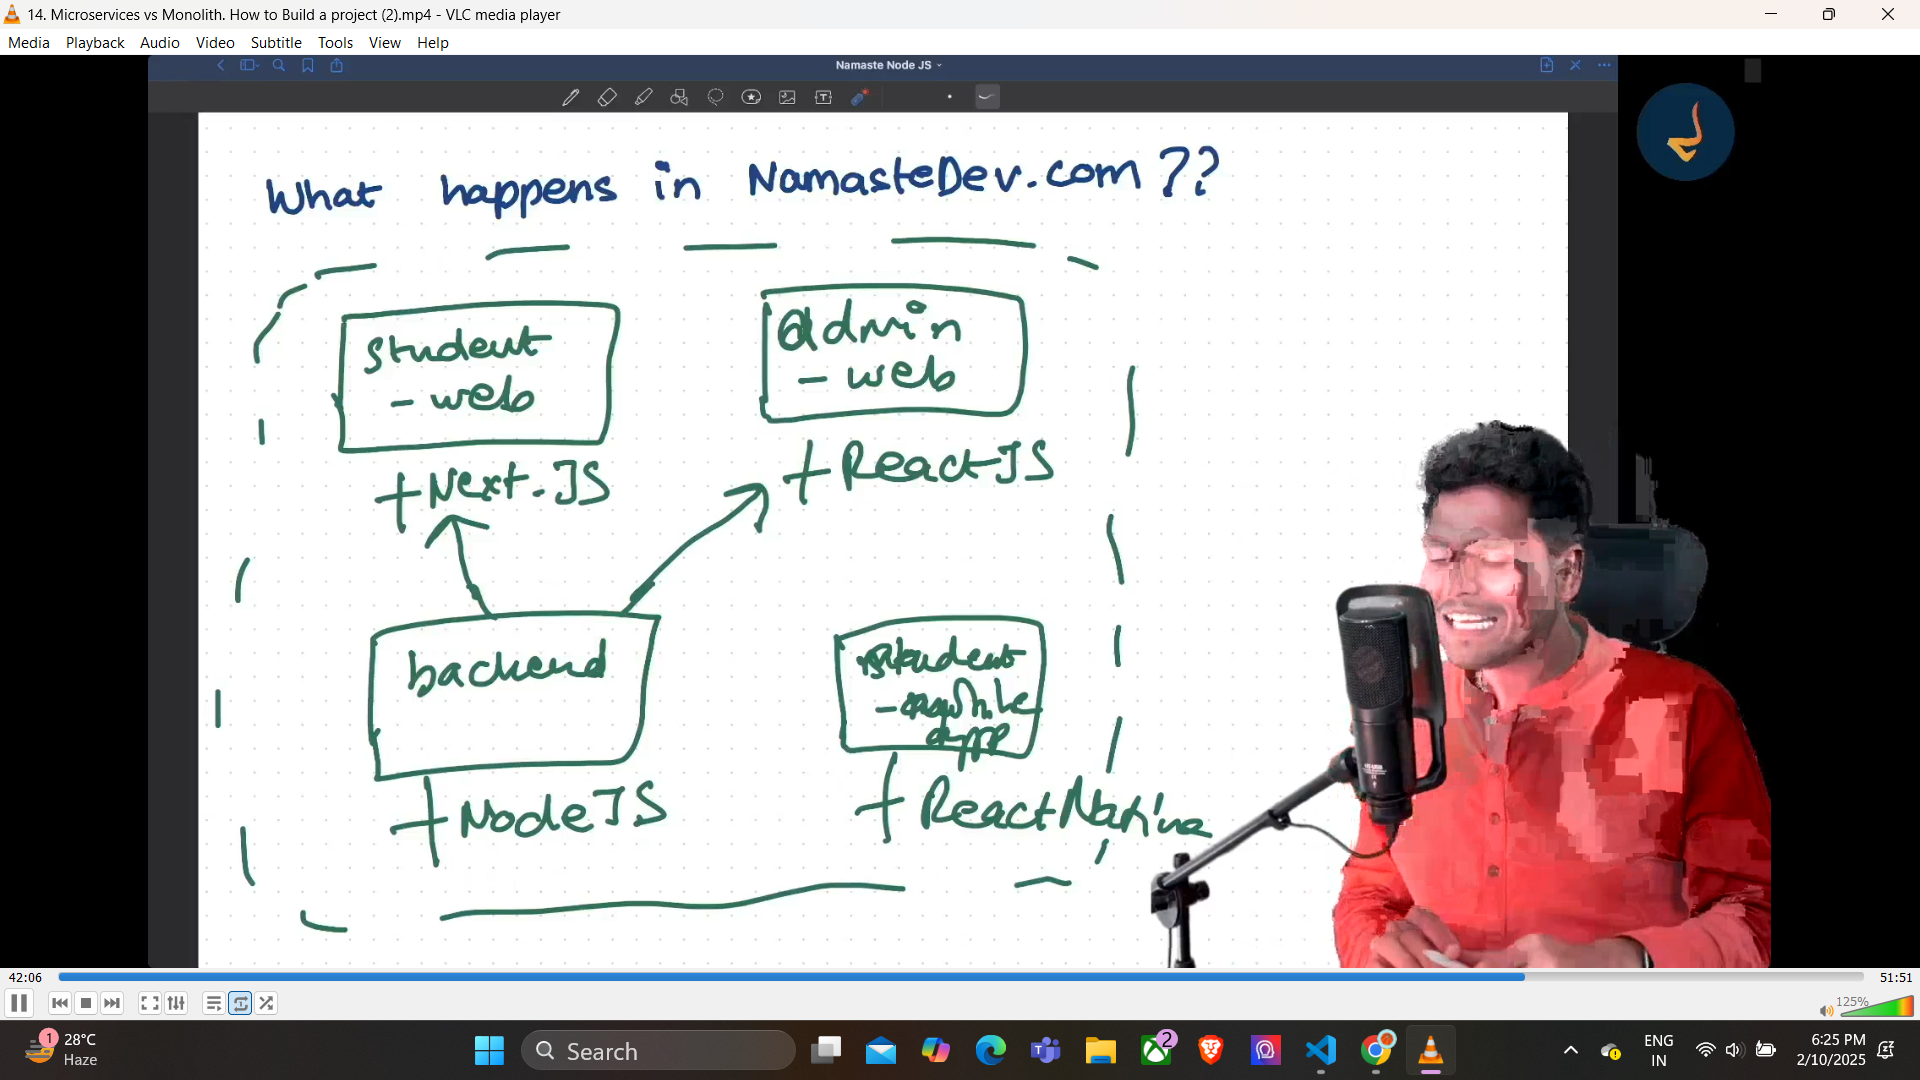 14. Microservices vs Monolith. How to Build a project (2).mp4 - VLC media player
Media Playback Audio Video Subtitle Tools View Help
Namaste Node JS
What happens in NamasteDev.com ??
student
- web
admin
- web
+ Next.JS
+ ReactJS
backend
student
- mobile
app
+ NodeJS
+ ReactNative
42:06
51:51
125%
1
28°C
Haze
Search
2
ENG
IN
6:25 PM
2/10/2025